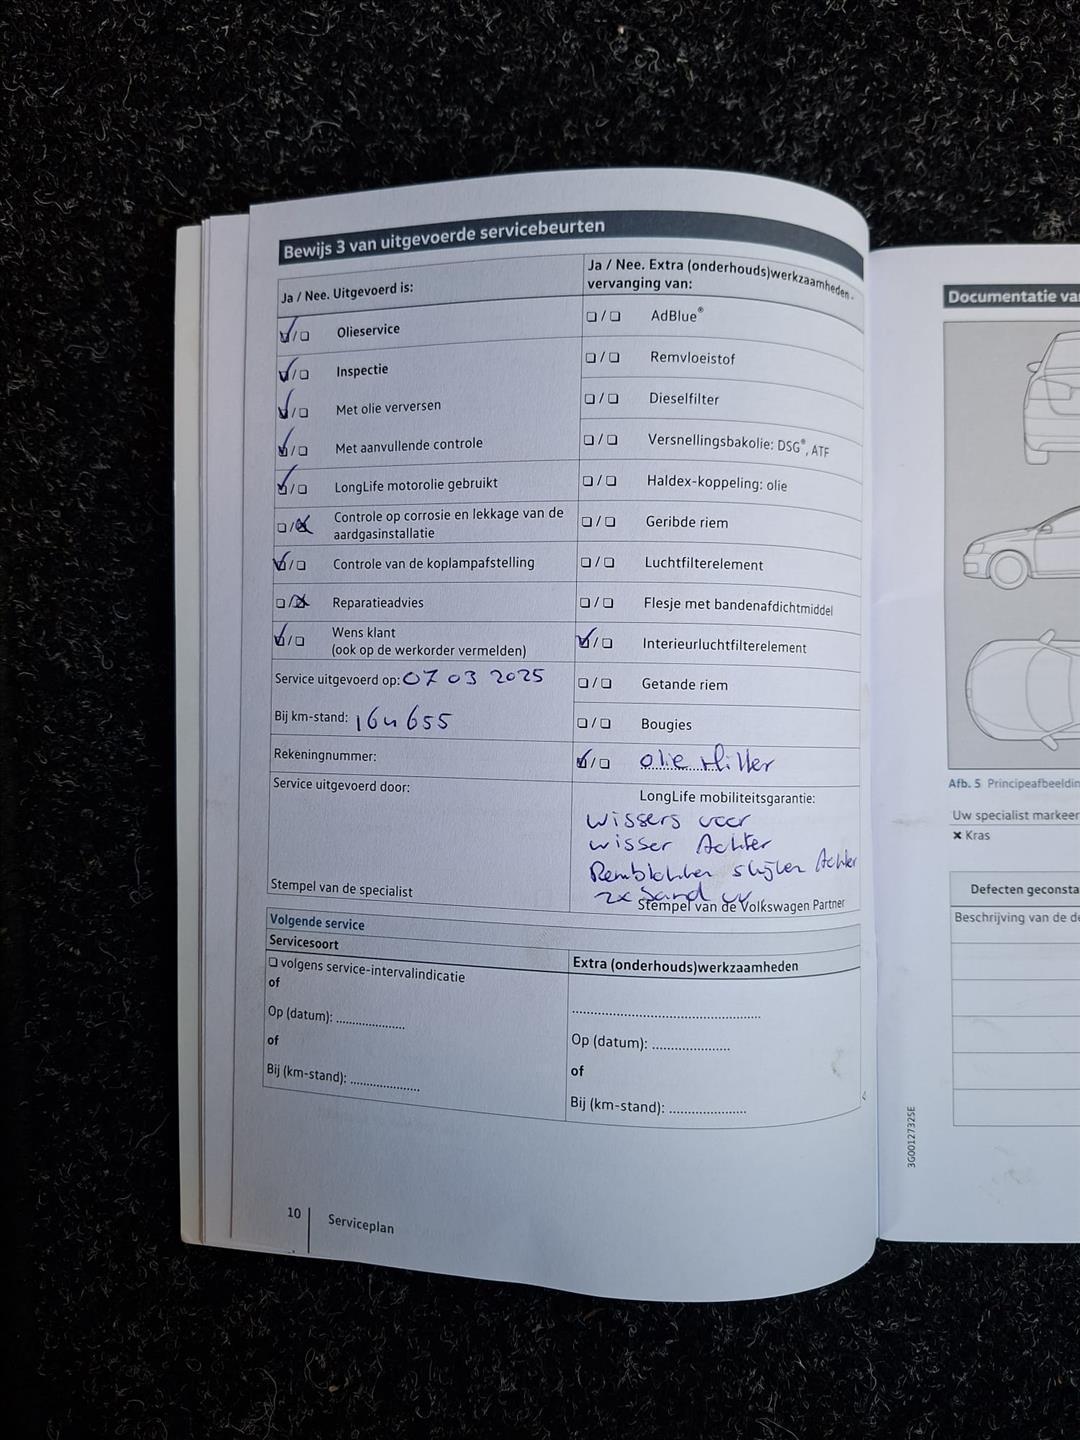 Bewijs 3 van uitgevoerde servicebeurten
Ja / Nee. Uitgevoerd is:
Olieservice
Inspectie
Met olie verversen
Met aanvullende controle
LongLife motorolie gebruikt
Controle op corrosie en lekkage van de
aardgasinstallatie
Controle van de koplampafstelling
Reparatieadvies
Wens klant
(ook op de werkorder vermelden)
Service uitgevoerd op: 07 03 2025
Bij km-stand: 164655
Rekeningnummer:
Service uitgevoerd door:
Stempel van de specialist
Ja / Nee. Extra (onderhouds)werkzaamheden -
vervanging van:
AdBlue®
Remvloeistof
Dieselfilter
Versnellingsbakolie: DSG®, ATF
Haldex-koppeling: olie
Geribde riem
Luchtfilterelement
Flesje met bandenafdichtmiddel
Interieurluchtfilterelement
Getande riem
Bougies
olie filter
LongLife mobiliteitsgarantie:
wissers voor
wisser Achter
Remblokken slijten Achter
2x Band
Stempel van de Volkswagen Partner
Volgende service
Servicesoort
volgens service-intervalindicatie
of
Op (datum): ....................
of
Bij (km-stand): ....................
Extra (onderhouds)werkzaamheden
..................................................
Op (datum): ....................
of
Bij (km-stand): ....................
10 Serviceplan
Documentatie va
Afb. 5 Principeafbeeldin
Uw specialist markeer
× Kras
Defecten geconsta
Beschrijving van de de
3G0012732SE